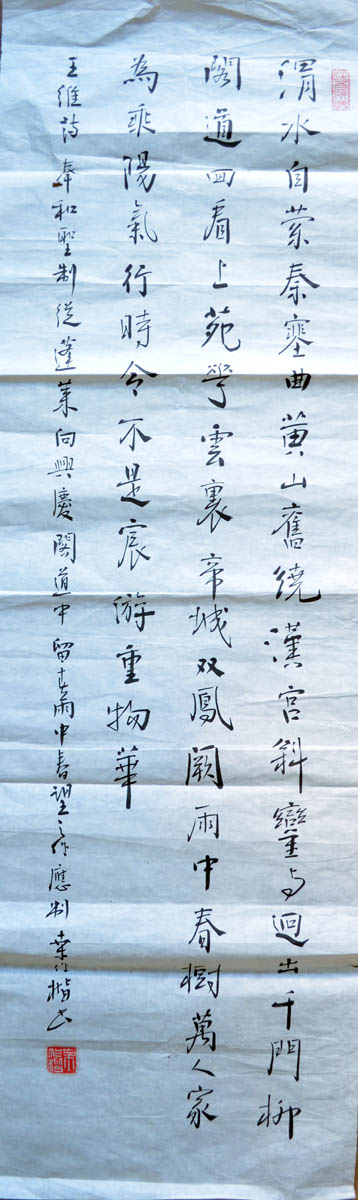 渭水自萦秦塞曲黄山舊繞漢宮斜鑾与迴出千門柳
閣道回看上苑雲裏帝城双鳳闕雨中春樹萬人家
為乘陽氣行時令不是宸游重物華
王維詩奉和聖制從蓬萊向興慶閣道中留春雨中春望之作應制桑作楷书